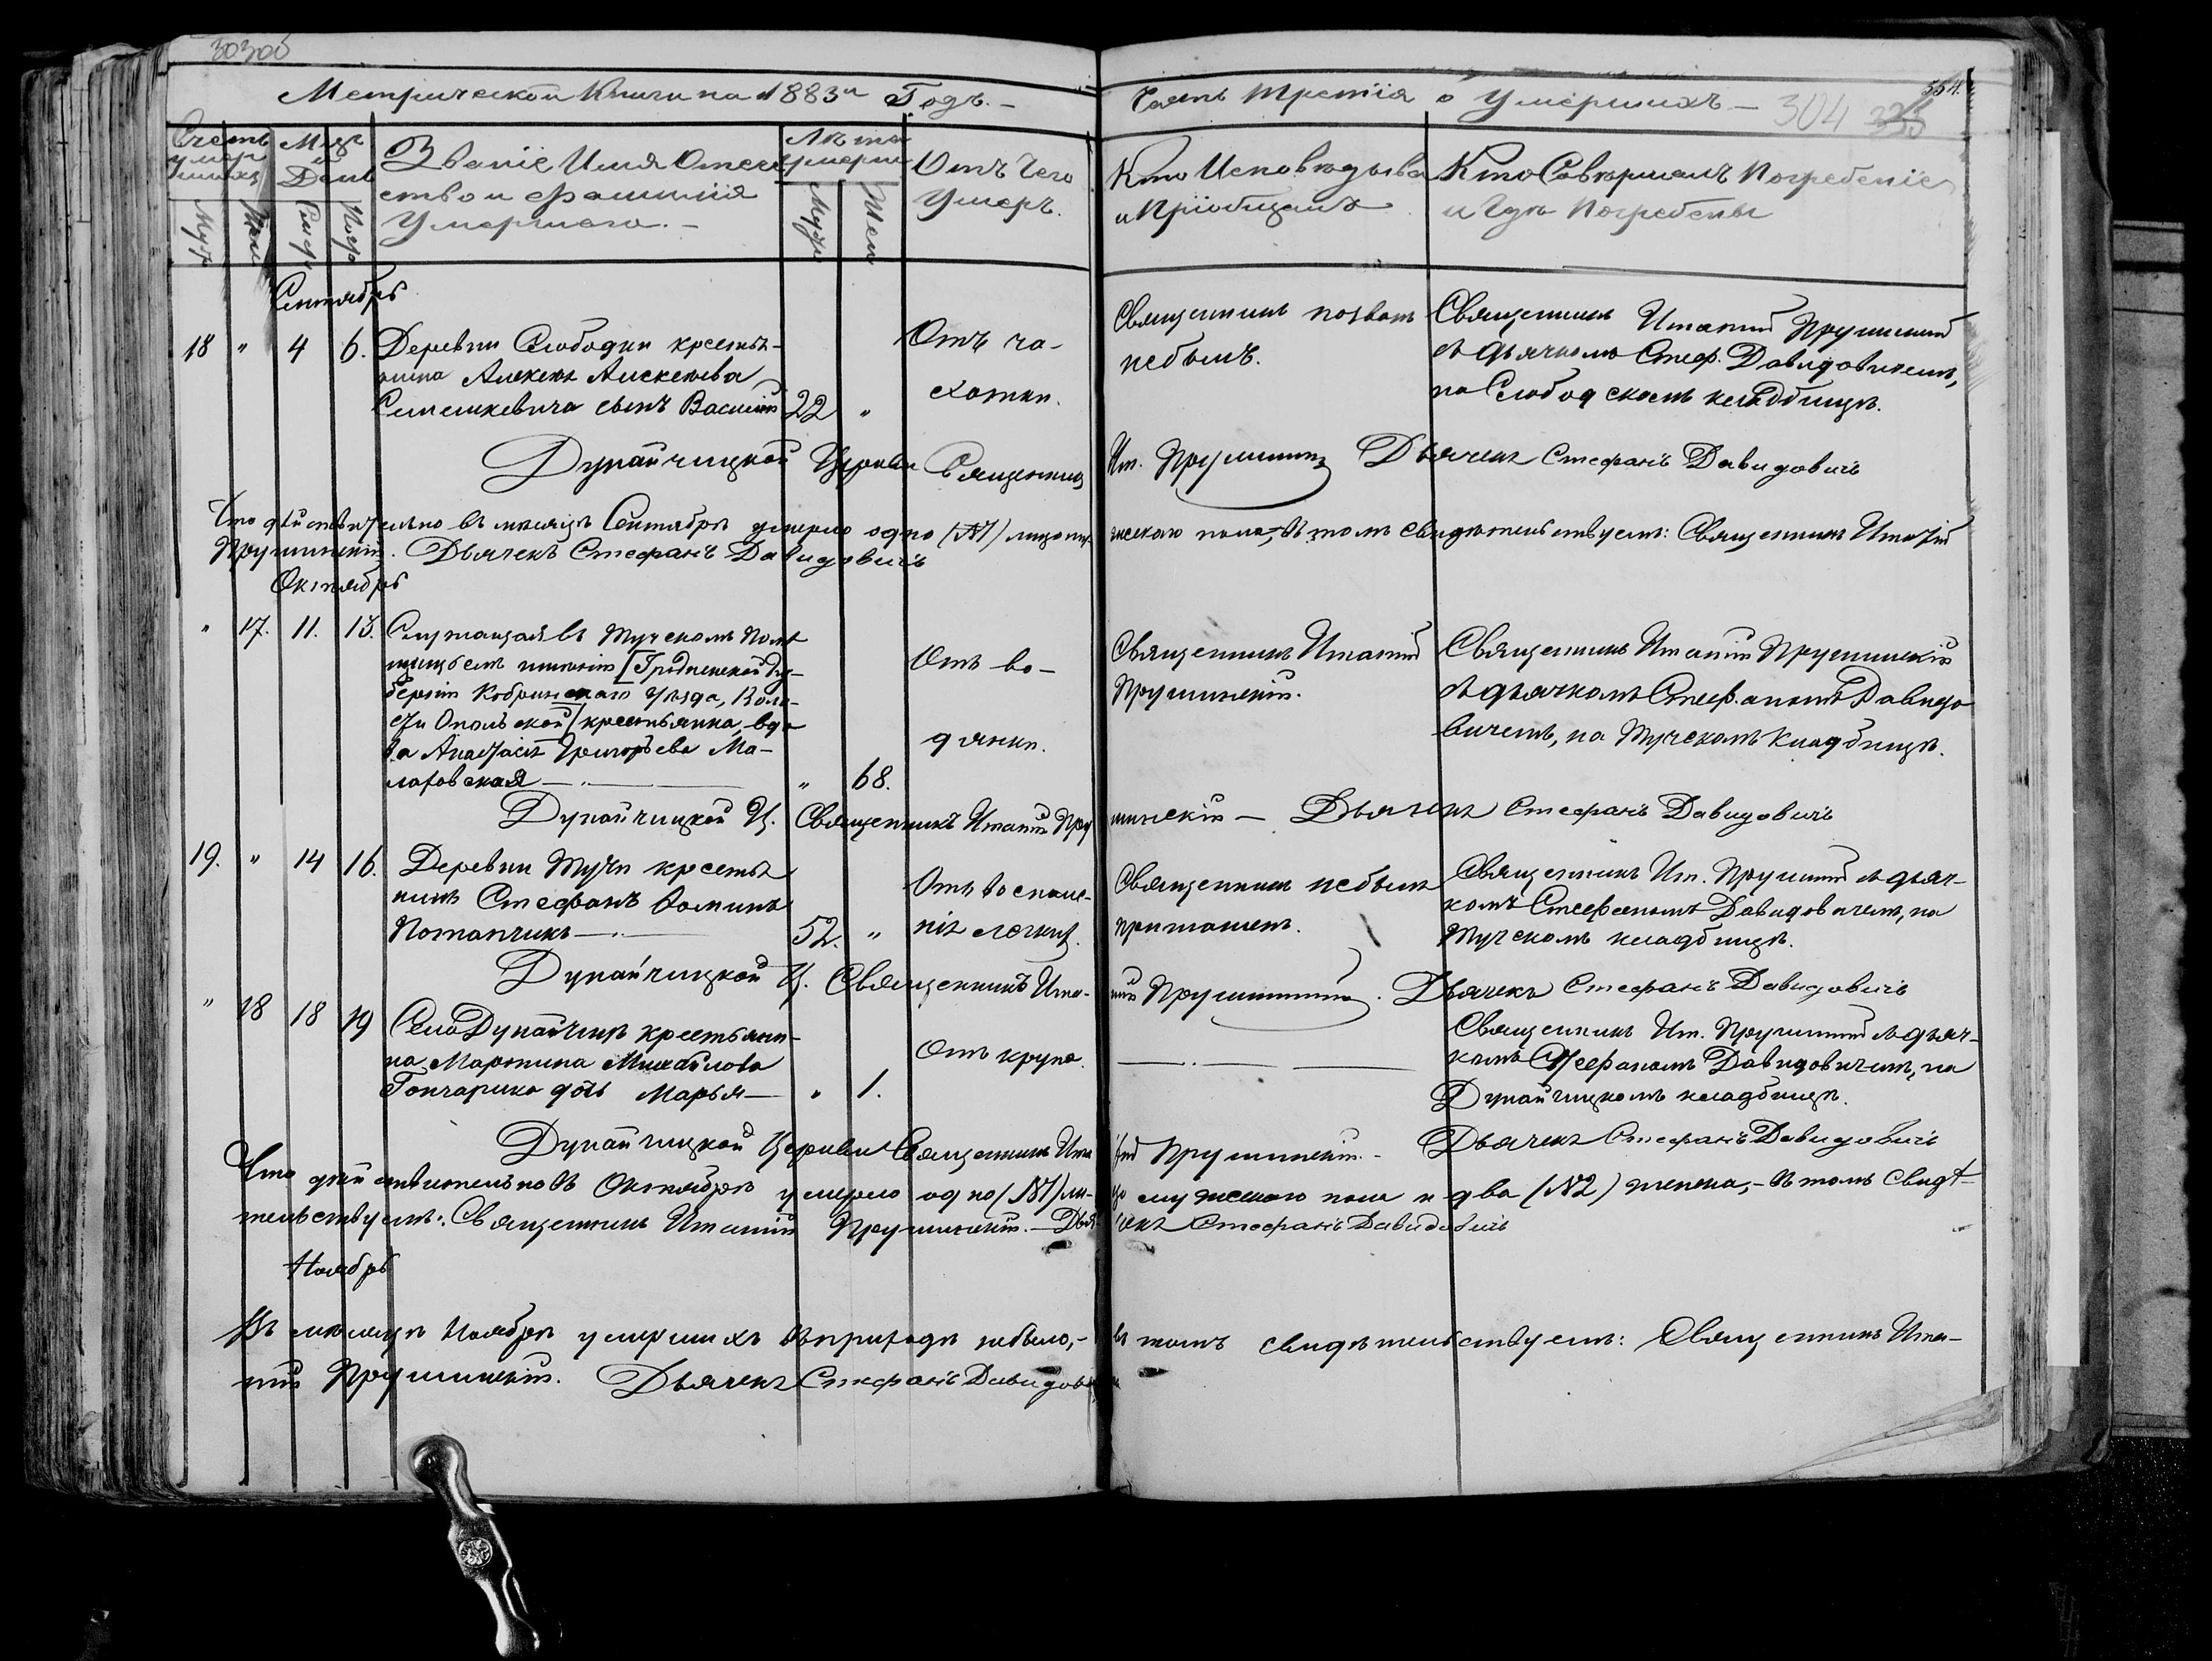 303об
Метрической Книги на 1883й Годъ. —
Часть Третія о Умершихъ —
554.
304
Счетъ умершихъ
Муж
Жен
Мцъ и День
Смер
Погр
Званіе Имя Отече
ство и Фамилія
Умершаго. —
Лѣта умерш
Муж
Жен
Отъ Чего
Умеръ.
Кто Исповѣдыва
и Пріобщалъ
Кто Совершалъ Погребеніе
и Гдѣ Погребены
Сентябрь
18 " 4 6.
Деревни Слободки крестья-
нина Алексѣя Алексѣева
Семешкевича сынъ Василій 22 "
Отъ ча-
хотки.
Священникъ позванъ
небылъ.
Священникъ Игнатій Прушинскій
съ дьячкомъ Стеф. Давидовичемъ,
на Слободскомъ кладбищѣ.
Дунайчицкой Церкви Священникъ Иг. Прушинскій Дьячекъ Стефанъ Давидовичъ
Что дѣйствительно въ мѣсяцѣ Сентябрѣ умерло одно (№1) лицо мужескаго пола,- въ томъ свидѣтельствуемъ: Священникъ Игнатій
Прушинскій. Дьячекъ Стефанъ Давидовичъ
Октябрь
" 17. 11. 13.
Служащая въ Тучскомъ
имѣніи [Гродненской Гу-
берніи Кобринскаго уѣзда, Воло-
сти Опольской] крестьянка, вдо-
ва Анастасія Григорьева Ма-
лаховская — " 68.
Отъ во-
дянки.
Священникъ Игнатій
Прушинскій.
Священникъ Игнатій Прушинскій
съ дьячкомъ Стефаномъ Давидо
вичемъ, на Тучскомъ Кладбищѣ.
Дунайчицкой Ц. Священникъ Игнатій Прушинскій — Дьячекъ Стефанъ Давидовичъ
19. " 14 16.
Деревни Тучи крестья
нинъ Стефанъ Ѳоминъ
Потапчикъ — 52. "
Отъ воспале-
нія легкихъ.
Священникъ небылъ
приглашенъ.
Священникъ Иг. Прушинскій съ дьяч-
комъ Стефаномъ Давидовичемъ, на
Тучскомъ кладбищѣ.
Дунайчицкой Ц. Священникъ Игнатій Прушинскій. Дьячекъ Стефанъ Давидовичъ
" 18 18 19
Села Дунайчицъ крестьяни-
на Мартина Михайлова
Гончарика дочь Марья — " 1.
Отъ крупа.
Священникъ Иг. Прушинскій съ дьяч-
комъ Стефаномъ Давидовичемъ, на
Дунайчицкомъ кладбищѣ.
Дунайчицкой Церкви Священникъ Игнатій Прушинскій. - Дьячекъ Стефанъ Давидовичъ
Что дѣйствительно въ Октябрѣ умерло одно (№1) лицо мужескаго пола и два (№2) женска,- въ томъ свидѣ-
тельствуемъ: Священникъ Игнатій Прушинскій. — Дьячекъ Стефанъ Давидовичъ
Ноябрь
Въ мѣсяцѣ Ноябрѣ умершихъ въ приходѣ небыло,- въ томъ свидѣтельствуемъ: Священникъ Игна-
тій Прушинскій. Дьячекъ Стефанъ Давидовичъ